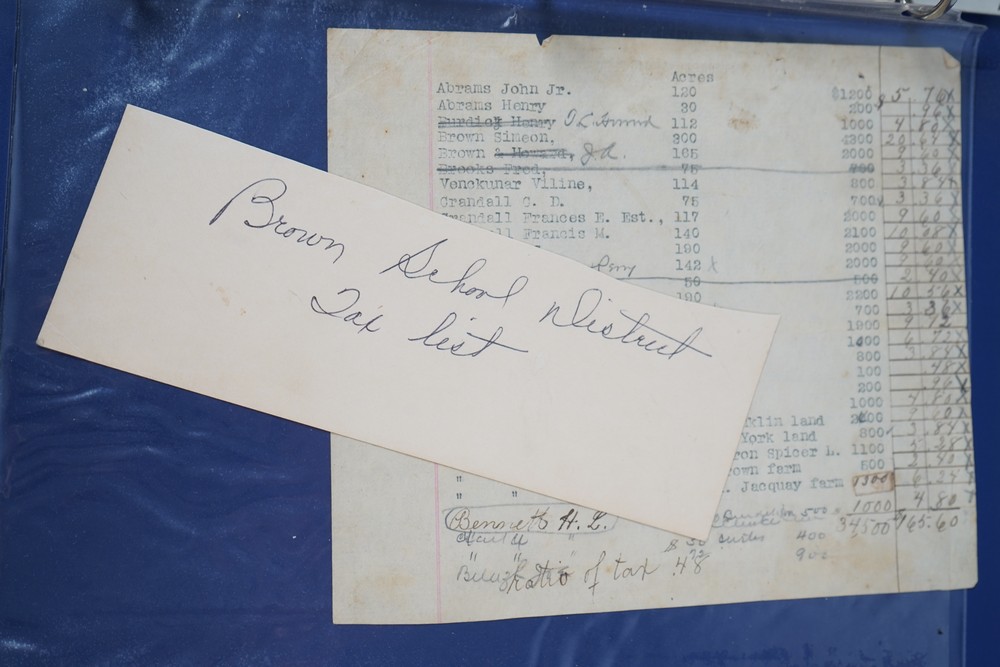 Brown School District
Tax list
Acres
Abrams John Jr. 120 $1200 5.76 X
Abrams Henry 30 200 .96 X
Burdick Henry 112 1000 4.80 X
Brown Simeon, 300 4300 20.64 X
Brown & Howard, J.A. 165 2000 9.60 X
Brooks Fred, 75 700 3.36 X
Venckunar Viline, 114 800 3.84 X
Crandall C. D. 75 700 3.36 X
Crandall Frances E. Est., 117 2000 9.60 X
Francis M. 140 2100 10.08 X
190 2000 9.60 X
Perry 142 X 2000 9.60 X
50 500 2.40 X
190 2200 10.56 X
700 3.36 X
1900 9.12
1400 6.72 X
800 3.84 X
100 .48 X
200 .96 X
1000 4.80 X
klin land 2000 9.60 X
York land 800 3.84 X
ron Spicer L. 1100 5.28 X
own farm 500 2.40 X
" Jacquay farm 1300 6.24 X
" " 1000 4.80
Bennett H. L. 500 34500 165.60
" 400
" " 900
Ratio of tax .48